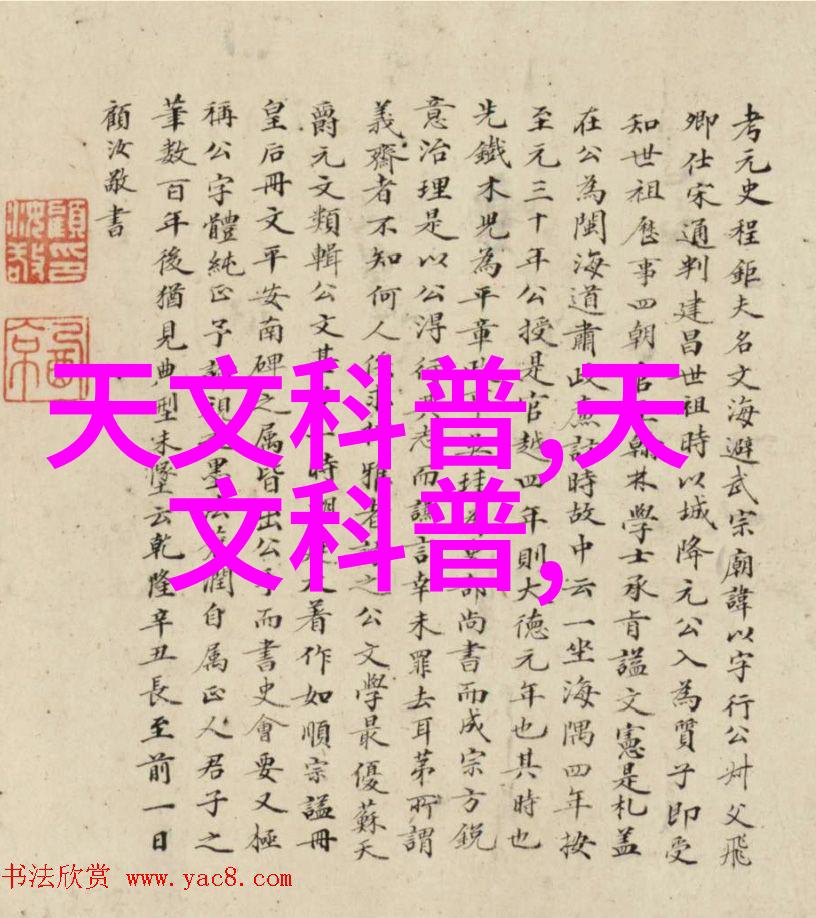 考元史程鉅夫名文海避武宗廟諱以字行公叔父飛
卿仕宋通判建昌世祖時以城降元公入為質子即受
知世祖歷事四朝官翰林學士承旨諡文憲是札蓋
在公為閩海道肅政廉訪時故中云一坐海隅四年按
至元三十年公授是官越四年則大德元年也其時也
先鐵木兒為平章部尚書而成宗方銳
意治理是以公得行其志而言幸未罪去耳苐所謂
義齋者不知何人雅者之公文學最優蘇天
爵元文類輯公文甚時大著作如順宗諡冊
皇后冊文平安南碑之属皆出公手而書史會要又極
稱公字體純正予祖墨潤自属正人君子之
筆數百年後猶見典型未墜云乾隆辛丑長至前一日
顧汝敬書
天文科普,天
文科普,
书法欣赏 www.yac8.com